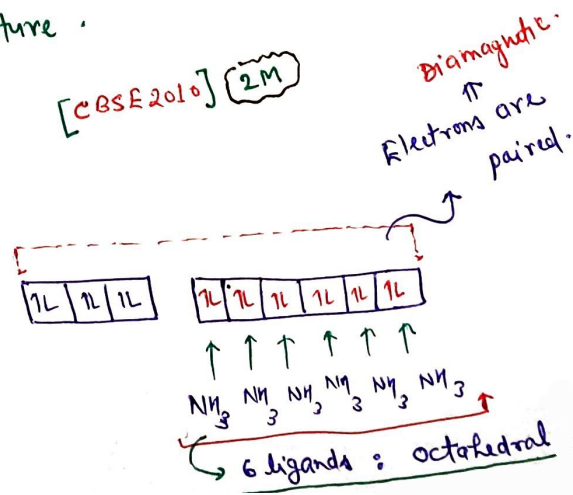 ture.
[CBSE 2010] 2M
Diamagnetic.
⇑
Electrons are
paired.
1L 1L 1L 1L 1L 1L 1L 1L 1L
↑ ↑ ↑ ↑ ↑ ↑
NH3 NH3 NH3 NH3 NH3 NH3
6 ligands : octahedral